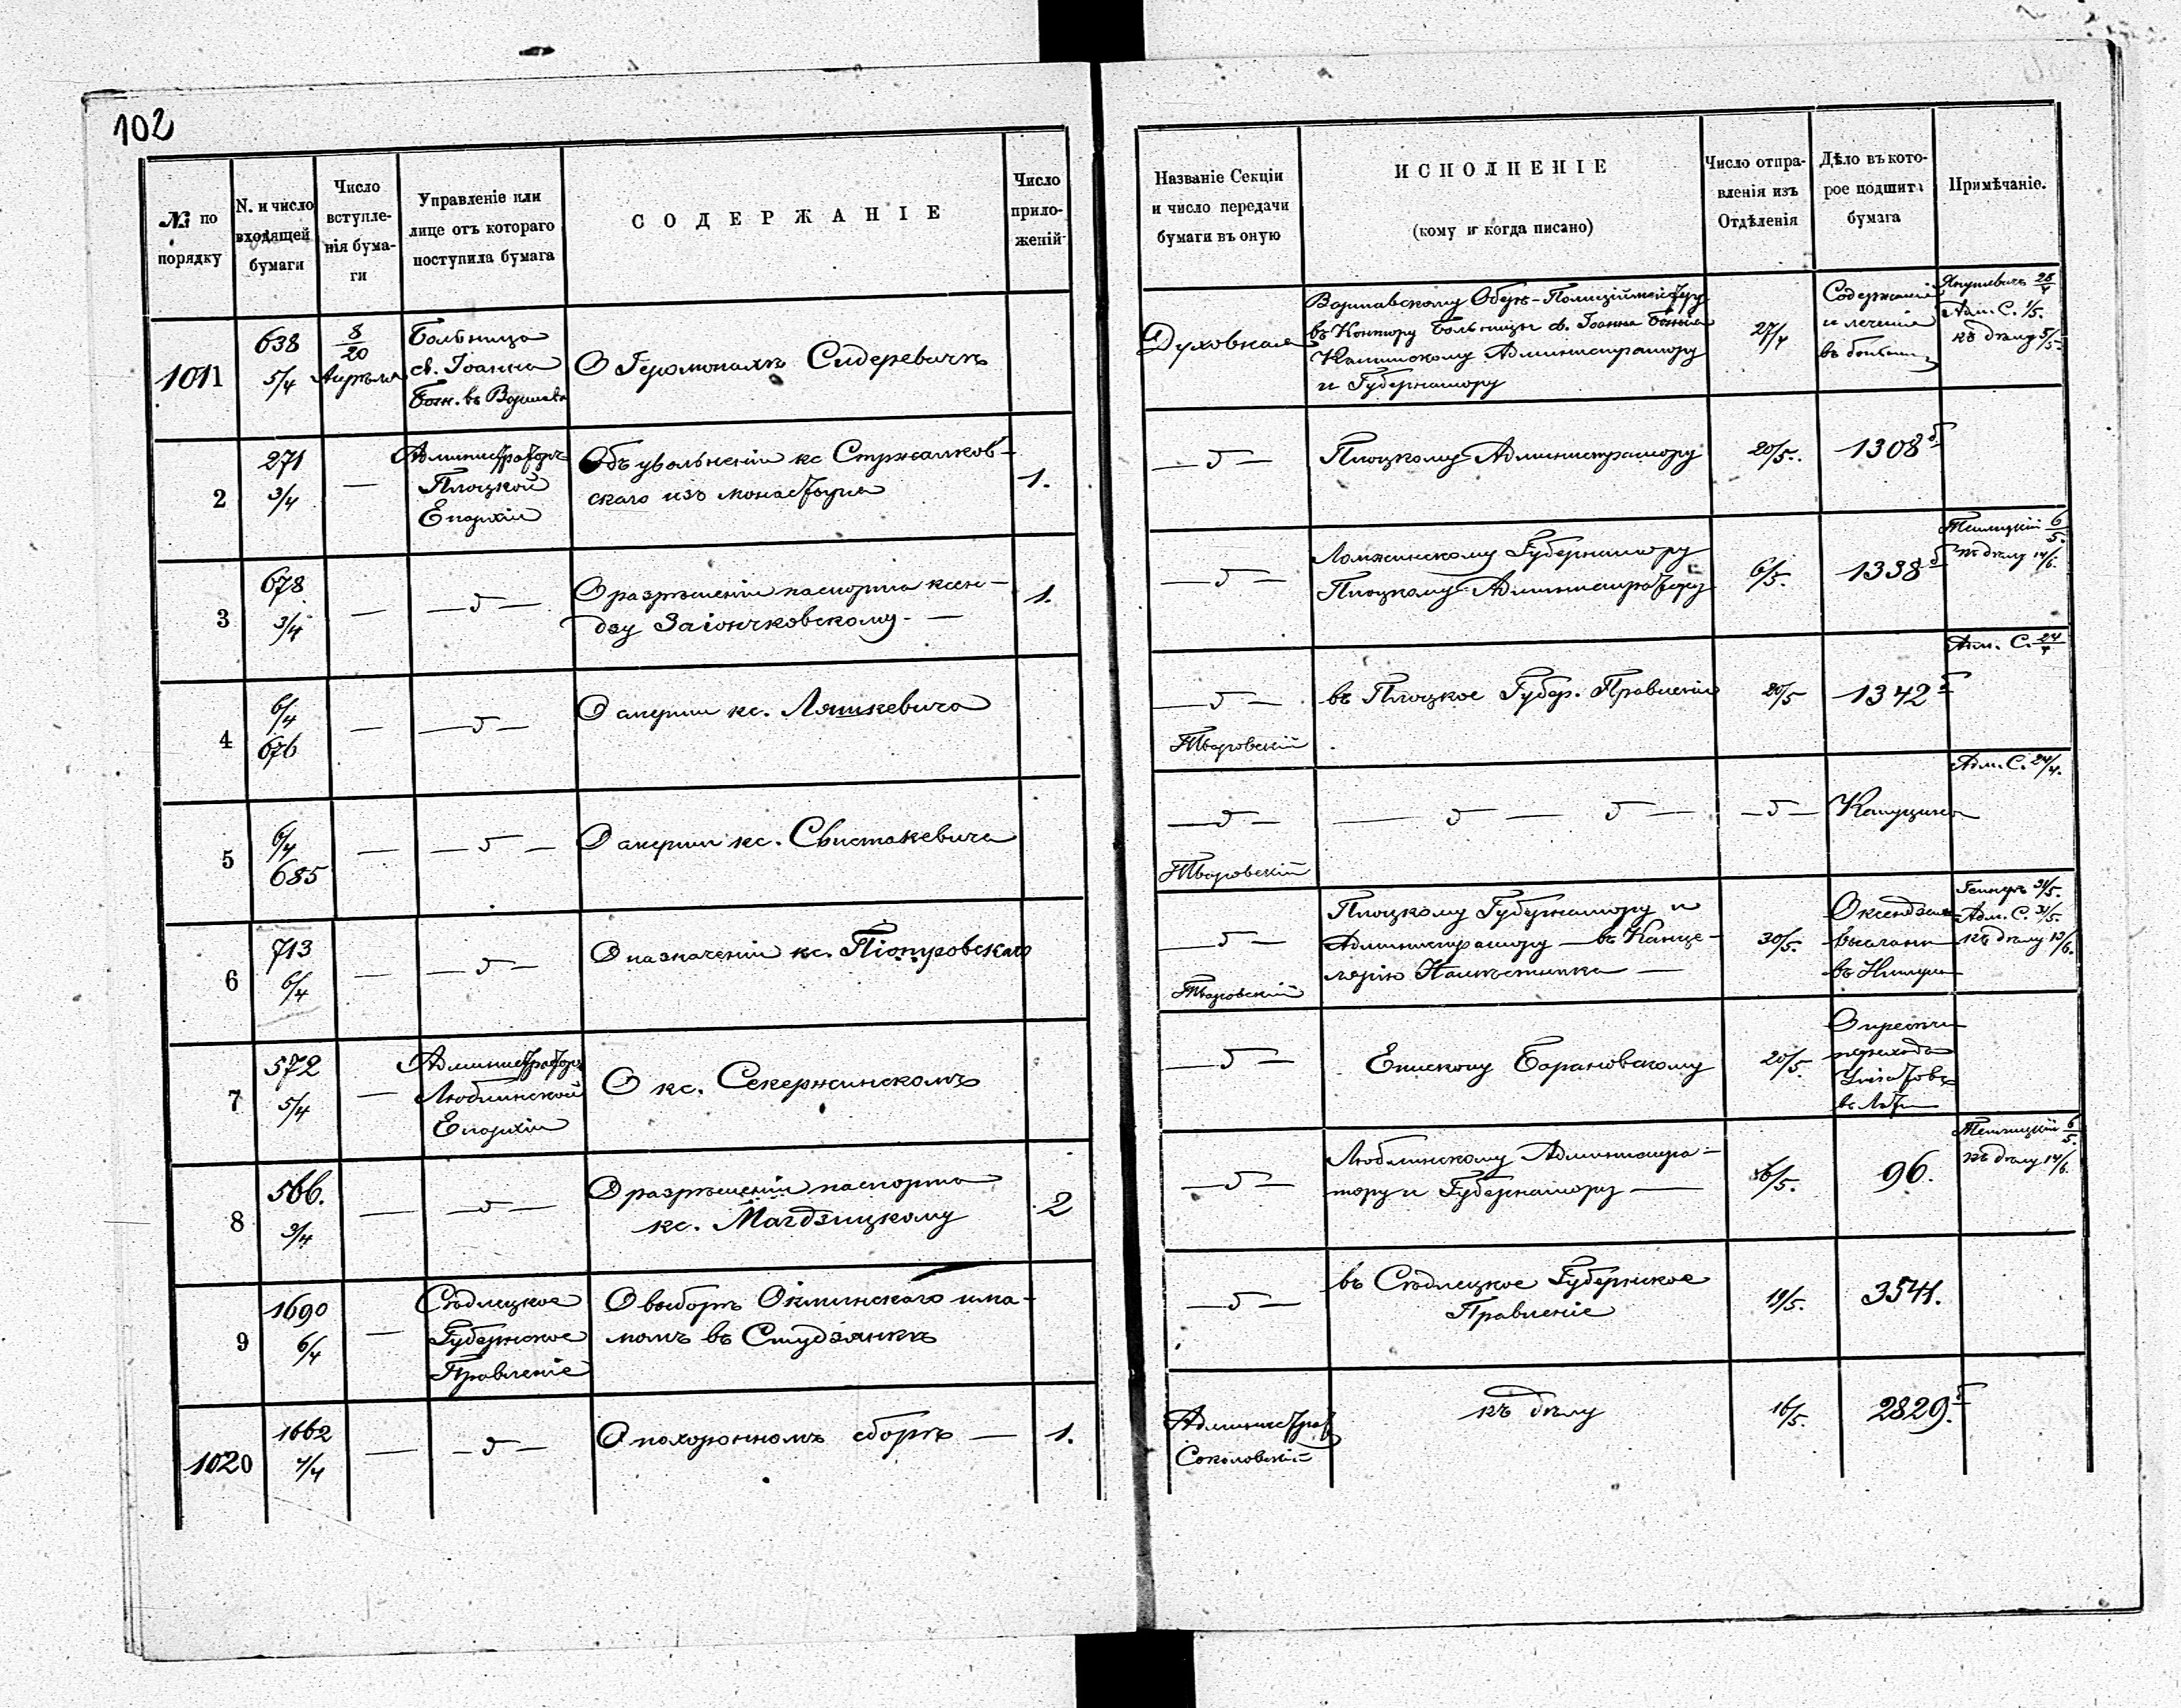 102
№ по порядку
N. и число входящей бумаги
Число вступле-нія бума-ги
Управленіе или лице отъ котораго поступила бумага
СОДЕРЖАНІЕ
Число прило-женій
Названіе Секціи и число передачи бумаги въ оную
ИСПОЛНЕНІЕ
(кому и когда писано)
Число отпра-вленія изъ Отдѣленія
Дѣло въ кото-рое подшита бумага
Примѣчаніе.
1011
638
5/4
8/20
Апрѣля
Больница
св. Іоанна
Бож. въ Варшавѣ
О Іеромонахѣ Сидеревичѣ
Духовная
Варшавскому Оберъ-Полиціймейстеру
въ Контору Больницы св. Іоанна Божія
Администратору
и Губернатору
27/4
Содержаніе
и леченіе
въ больниц
28/4
Адм. С. 1/5.
къ дѣлу 5/5.
2
271
3/4
—
Администраторъ
Плоцкой
Епархіи
Объ увольненіи кс Стржалков-
скаго изъ монастыря
1.
— ″ —
Плоцкому Администратору
20/5.
1308
3
678
3/4
—
— ″ —
О разрѣшеніи паспорта ксен-
дзу Заіончковскому. —
1.
— ″ —
Ломжинскому Губернатору
Плоцкому Администратору
6/5.
1338
6/5.
къ дѣлу 14/6.
4
6/4
676
—
— ″ —
О смерти кс. Ляшкевича
— ″ —
Тваровскій
въ Плоцкое Губер. Правленіе
20/5
1342
Адм. С. 24/4
5
6/4
685
—
— ″ —
О смерти кс. Свистакевича
— ″ —
Тваровскій
— ″ — ″ —
— ″ —
Адм. С. 24/4.
6
713
6/4
—
— ″ —
О назначеніи кс. Піотровскаго
— ″ —
Тваровскій
Плоцкому Губернатору и
Администратору — въ Канце-
лярію Намѣстника —
30/5.
О ксендзахъ
31/5.
Адм. С. 31/5.
къ дѣлу 13/6.
7
572
5/4
—
Администраторъ
Люблинской
Епархіи
О кс. Секержинскомъ
— ″ —
Епископу Барановскому
20/5.
8
566.
3/4
—
— ″ —
О разрѣшеніи паспорта
кс. Магдзицкому
2
— ″ —
Люблинскому Администра-
тору и Губернатору —
6/5.
96.
6/5.
къ дѣлу 14/6.
9
1690
6/4
—
Сѣдлецкое
Губернское
Правленіе
О выборѣ Окминскаго има-
момъ въ Студзянкѣ
— ″ —
въ Сѣдлецкое Губернское
Правленіе
19/5.
3541.
1020
1662
4/4
—
— ″ —
О похоронномъ сборѣ —
1.
Администрат
Соколовскій
къ дѣлу
16/5.
2829.